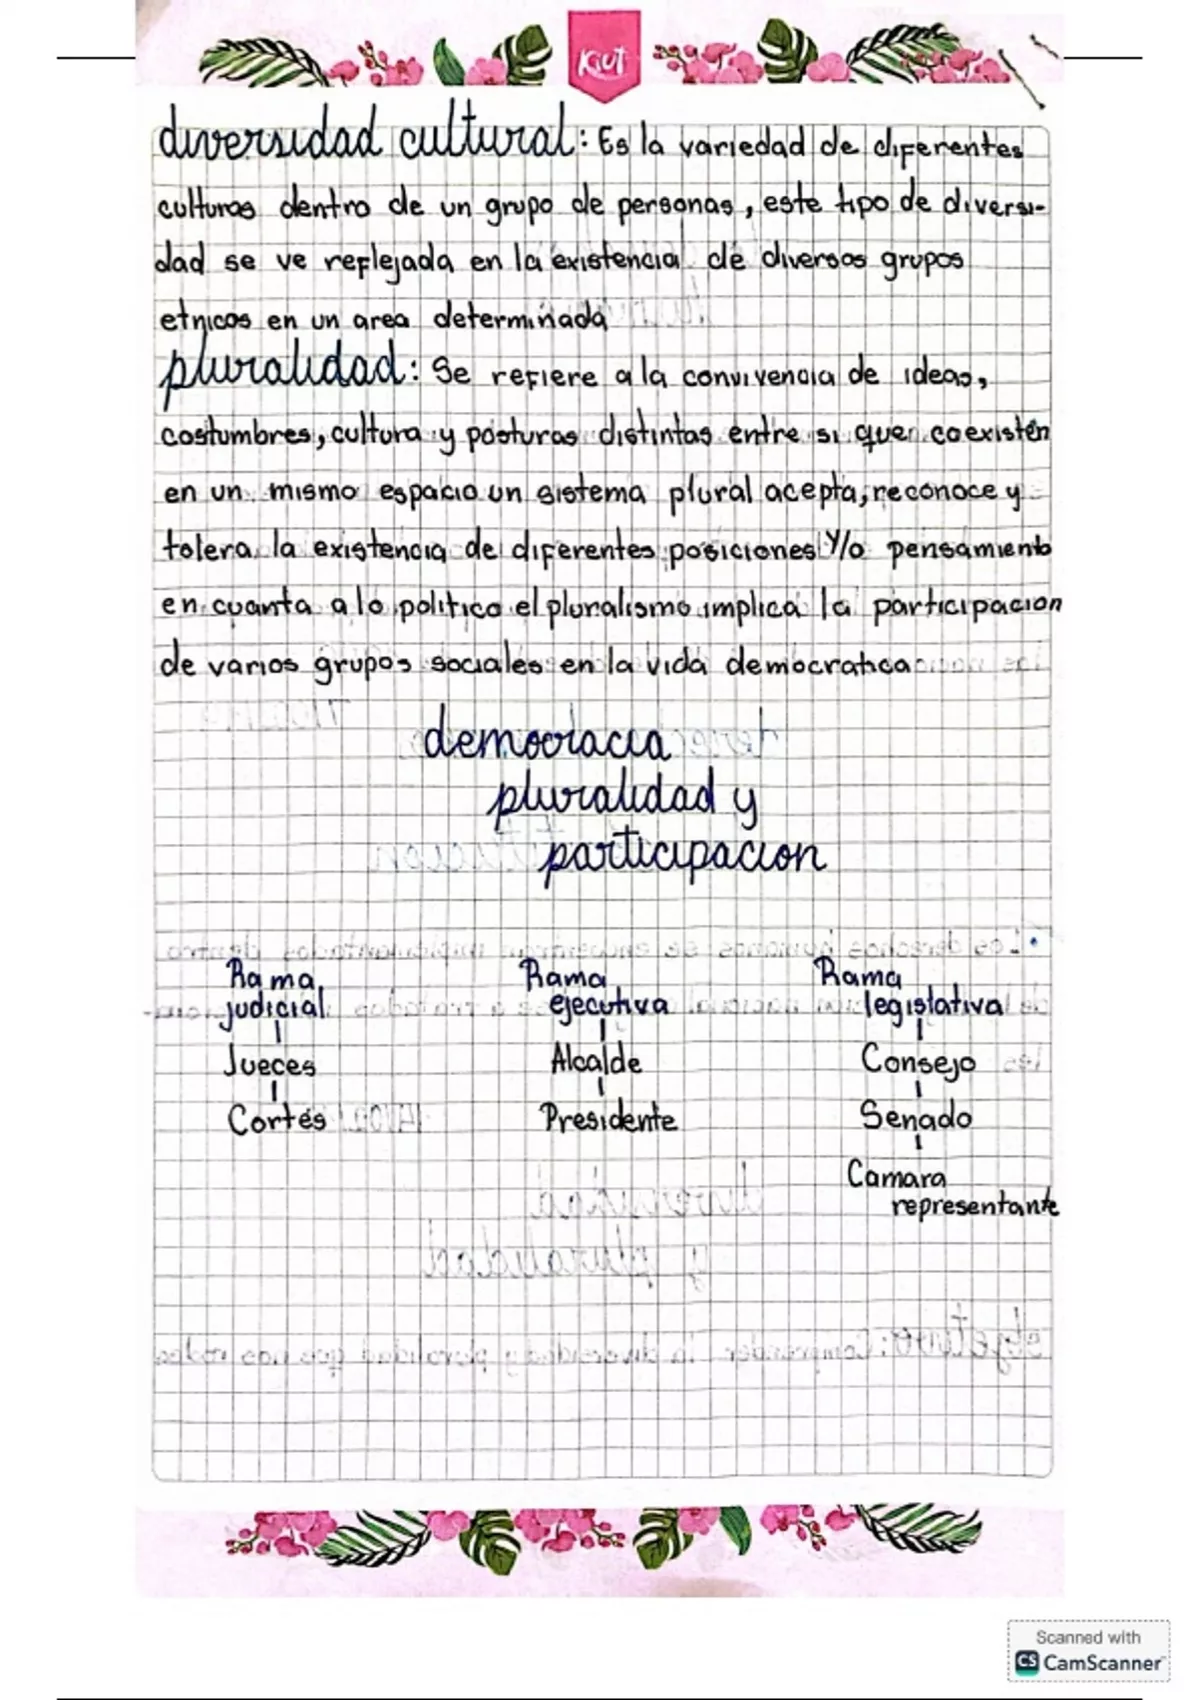 Kiut
diversidad cultural: Es la variedad de diferentes
culturas dentro de un grupo de personas, este tipo de diversi-
dad se ve reflejada en la existencia de diversos grupos
etnicos en un area determinada
pluralidad: Se refiere a la convivencia de ideas,
costumbres, cultura y posturas distintas entre si que coexisten
en un mismo espacio un sistema plural acepta, reconoce y
tolera la existencia de diferentes posiciones y/o pensamiento
en cuanta a lo politico el pluralismo implica la participacion
de varios grupos sociales en la vida democratica
democracia
pluralidad y
participacion
Rama Rama Rama
judicial ejecutiva legislativa
Jueces Alcalde Consejo
Cortes Presidente Senado
Camara
representante
Scanned with
CS CamScanner